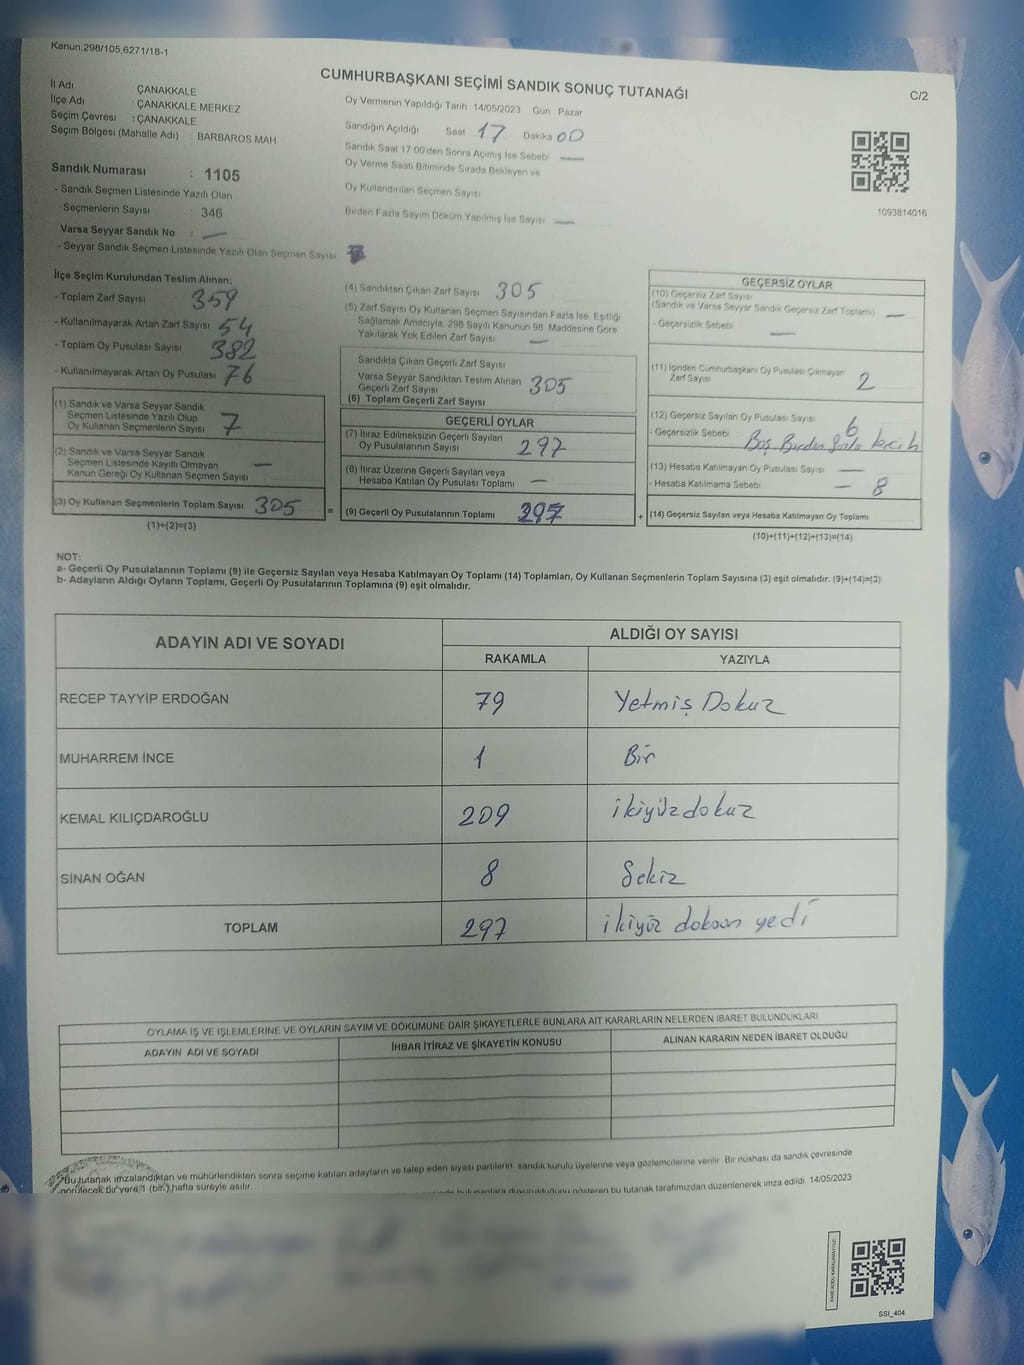 Kanun,298/105,6271/18-1
CUMHURBAŞKANI SEÇİMİ SANDIK SONUÇ TUTANAĞI
C/2
İl Adı ÇANAKKALE
İlçe Adı : ÇANAKKALE MERKEZ
Seçim Çevresi : ÇANAKKALE
Seçim Bölgesi (Mahalle Adı) : BARBAROS MAH.
Sandık Numarası : 1105
- Sandık Seçmen Listesinde Yazılı Olan
Seçmenlerin Sayısı : 346
Varsa Seyyar Sandık No : —
- Seyyar Sandık Seçmen Listesinde Yazılı Olan Seçmen Sayısı
Oy Vermenin Yapıldığı Tarih 14/05/2023 Gün : Pazar
Sandığın Açıldığı Saat 17 Dakika 00
Sandık Saat 17:00'den Sonra Açımış İse Sebebi —
Oy Verme Saati Bitiminde Sırada Bekleyen ve
Oy Kullandırılan Seçmen Sayısı
Birden Fazla Sayım Döküm Yapılmış İse Sayısı —
1093814016
İlçe Seçim Kurulundan Teslim Alınan;
- Toplam Zarf Sayısı 359
- Kullanılmayarak Artan Zarf Sayısı 54
- Toplam Oy Pusulası Sayısı 382
- Kullanılmayarak Artan Oy Pusulası 76
(1) Sandık ve Varsa Seyyar Sandık
Seçmen Listesinde Yazılı Olup
Oy Kullanan Seçmenlerin Sayısı 7
(2) Sandık ve Varsa Seyyar Sandık
Seçmen Listesinde Kayıtlı Olmayan
Kanun Gereği Oy Kullanan Seçmen Sayısı —
(3) Oy Kullanan Seçmenlerin Toplam Sayısı 305
(1)+(2)=(3)
=
(4) Sandıktan Çıkan Zarf Sayısı 305
(5) Zarf Sayısı Oy Kullanan Seçmen Sayısından Fazla İse, Eşitliği
Sağlamak Amacıyla, 298 Sayılı Kanunun 98. Maddesine Göre
Yakılarak Yok Edilen Zarf Sayısı —
Sandıkta Çıkan Geçerli Zarf Sayısı
Varsa Seyyar Sandıktan Teslim Alınan
Geçerli Zarf Sayısı 305
(6) Toplam Geçerli Zarf Sayısı
GEÇERLİ OYLAR
(7) İtiraz Edilmeksizin Geçerli Sayılan
Oy Pusulasının Sayısı 297
(8) İtiraz Üzerine Geçerli Sayılan veya
Hesaba Katılan Oy Pusulası Toplamı —
(9) Geçerli Oy Pusulalarının Toplamı 297
+
GEÇERSİZ OYLAR
(10) Geçersiz Zarf Sayısı
(Sandık ve Varsa Seyyar Sandık Geçersiz Zarf Toplamı) —
- Geçersizlik Sebebi —
(11) İçinden Cumhurbaşkanı Oy Pusulası Çıkmayan
Zarf Sayısı 2
(12) Geçersiz Sayılan Oy Pusulası Sayısı 6
- Geçersizlik Sebebi Boş Birden fazla
(13) Hesaba Katılmayan Oy Pusulası Sayısı —
- Hesaba Katılmama Sebebi — 8
(14) Geçersiz Sayılan veya Hesaba Katılmayan Oy Toplamı
(10)+(11)+(12)+(13)=(14)
NOT:
a- Geçerli Oy Pusulalarının Toplamı (9) ile Geçersiz Sayılan veya Hesaba Katılmayan Oy Toplamı (14) Toplamları, Oy Kullanan Seçmenlerin Toplam Sayısına (3) eşit olmalıdır. (9)+(14)=(3)
b- Adayların Aldığı Oyların Toplamı, Geçerli Oy Pusulalarının Toplamına (9) eşit olmalıdır.
ADAYIN ADI VE SOYADI ALDIĞI OY SAYISI
RAKAMLA YAZIYLA
RECEP TAYYİP ERDOĞAN 79 Yetmiş Dokuz
MUHARREM İNCE 1 Bir
KEMAL KILIÇDAROĞLU 209 ikiyüzdokuz
SİNAN OĞAN 8 Sekiz
TOPLAM 297 ikiyüz doksan yedi
OYLAMA İŞ VE İŞLEMLERİNE VE OYLARIN SAYIM VE DÖKÜMÜNE DAİR ŞİKAYETLERLE BUNLARA AİT KARARLARIN NELERDEN İBARET BULUNDUKLARI
ADAYIN ADI VE SOYADI İHBAR İTİRAZ VE ŞİKAYETİN KONUSU ALINAN KARARIN NEDEN İBARET OLDUĞU
Bu tutanak imzalandıktan ve mühürlendikten sonra seçime katılan adayların ve talep eden siyasi partilerin sandık kurulu üyelerine veya gözlemcilerine verilir. Bir nüshası da sandık çevresinde
görülecek bir yere 1 (bir) hafta süreyle asılır.
bulunanlara duyurulduğunu gösteren bu tutanak tarafımızdan düzenlenerek imza edildi. 14/05/2023
SSI_404